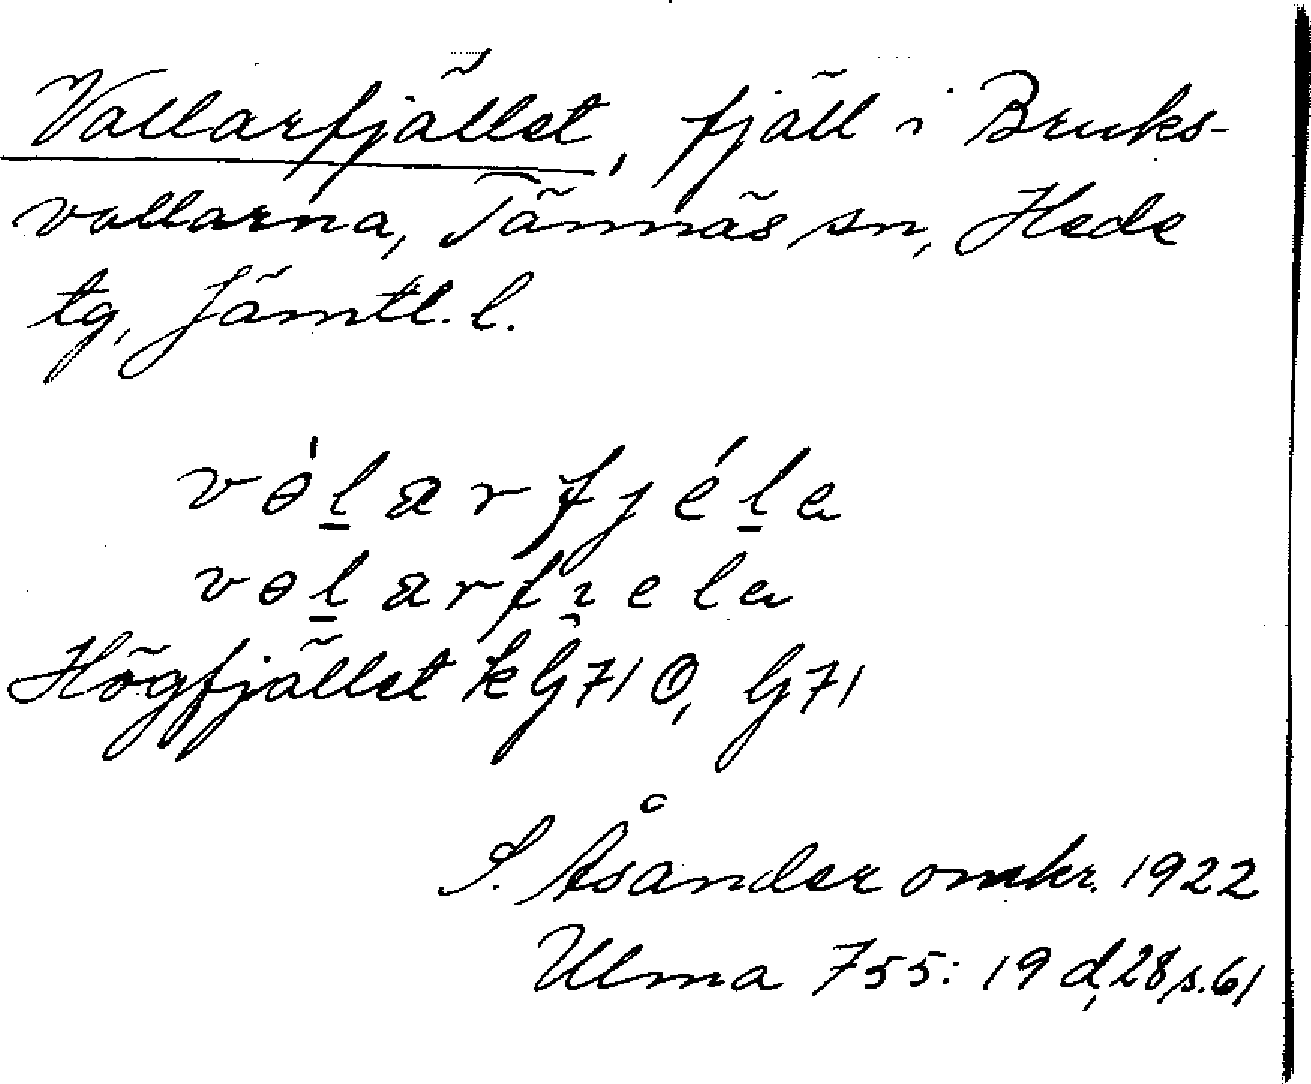 Vallarfjället, fjäll i Bruks-
vallarna, Tännäs sn, Hede
tg, Jämtl. l.
vɵ́l̲arfjél̲a
vɵl̲arfi̯ela
Högfjället k G71 O, G71
S. Åsander omkr. 1922
Ulma 755: 19 d, 28 s. 61